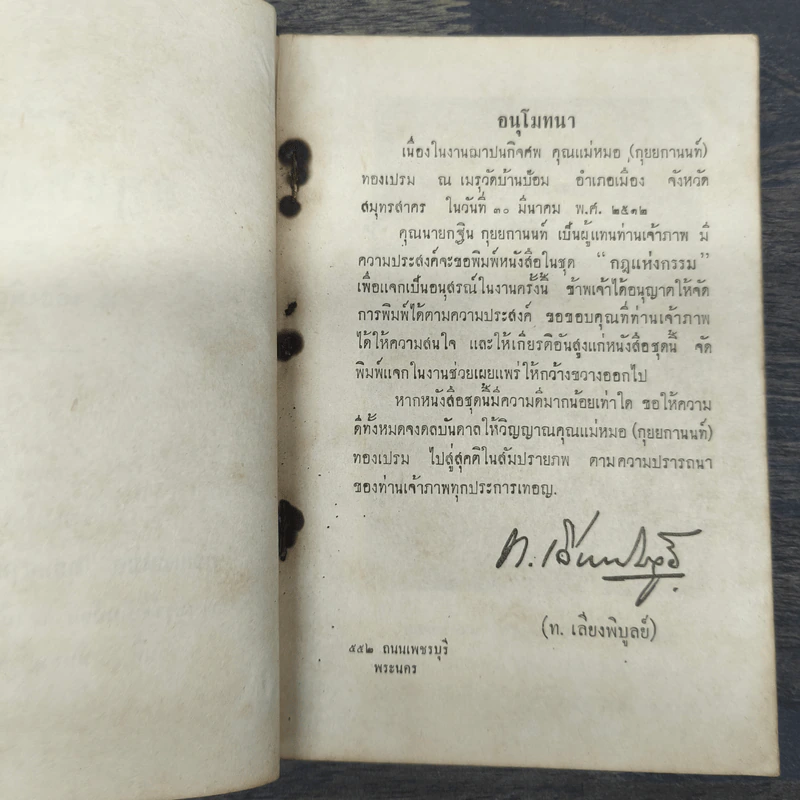 อนุโมทนา
เนื่องในงานฌาปนกิจศพ คุณแม่หมอ (กุยยกานนท์)
ทองเปรม ณ เมรุวัดบ้านบ่อม อำเภอเมือง จังหวัด
สมุทรสาคร ในวันที่ ๓๐ มีนาคม พ.ศ. ๒๕๑๒
คุณนายกฐิน กุยยกานนท์ เป็นผู้แทนท่านเจ้าภาพ มี
ความประสงค์จะขอพิมพ์หนังสือในชุด “ กฎแห่งกรรม ”
เพื่อแจกเป็นอนุสรณ์ในงานครั้งนี้ ข้าพเจ้าได้อนุญาตให้จัด
การพิมพ์ได้ตามความประสงค์ ขอขอบคุณที่ท่านเจ้าภาพ
ได้ให้ความสนใจ และให้เกียรติอันสูงแก่หนังสือชุดนี้ จัด
พิมพ์แจกในงานช่วยเผยแพร่ให้กว้างขวางออกไป
หากหนังสือชุดนี้มีความดีมากน้อยเท่าใด ขอให้ความ
ดีทั้งหมดจงดลบันดาลให้วิญญาณคุณแม่หมอ (กุยยกานนท์)
ทองเปรม ไปสู่สุคติในสัมปรายภพ ตามความปรารถนา
ของท่านเจ้าภาพทุกประการเทอญ.
ท. เลียงพิบูลย์
(ท. เลียงพิบูลย์)
๕๕๒ ถนนเพชรบุรี
พระนคร